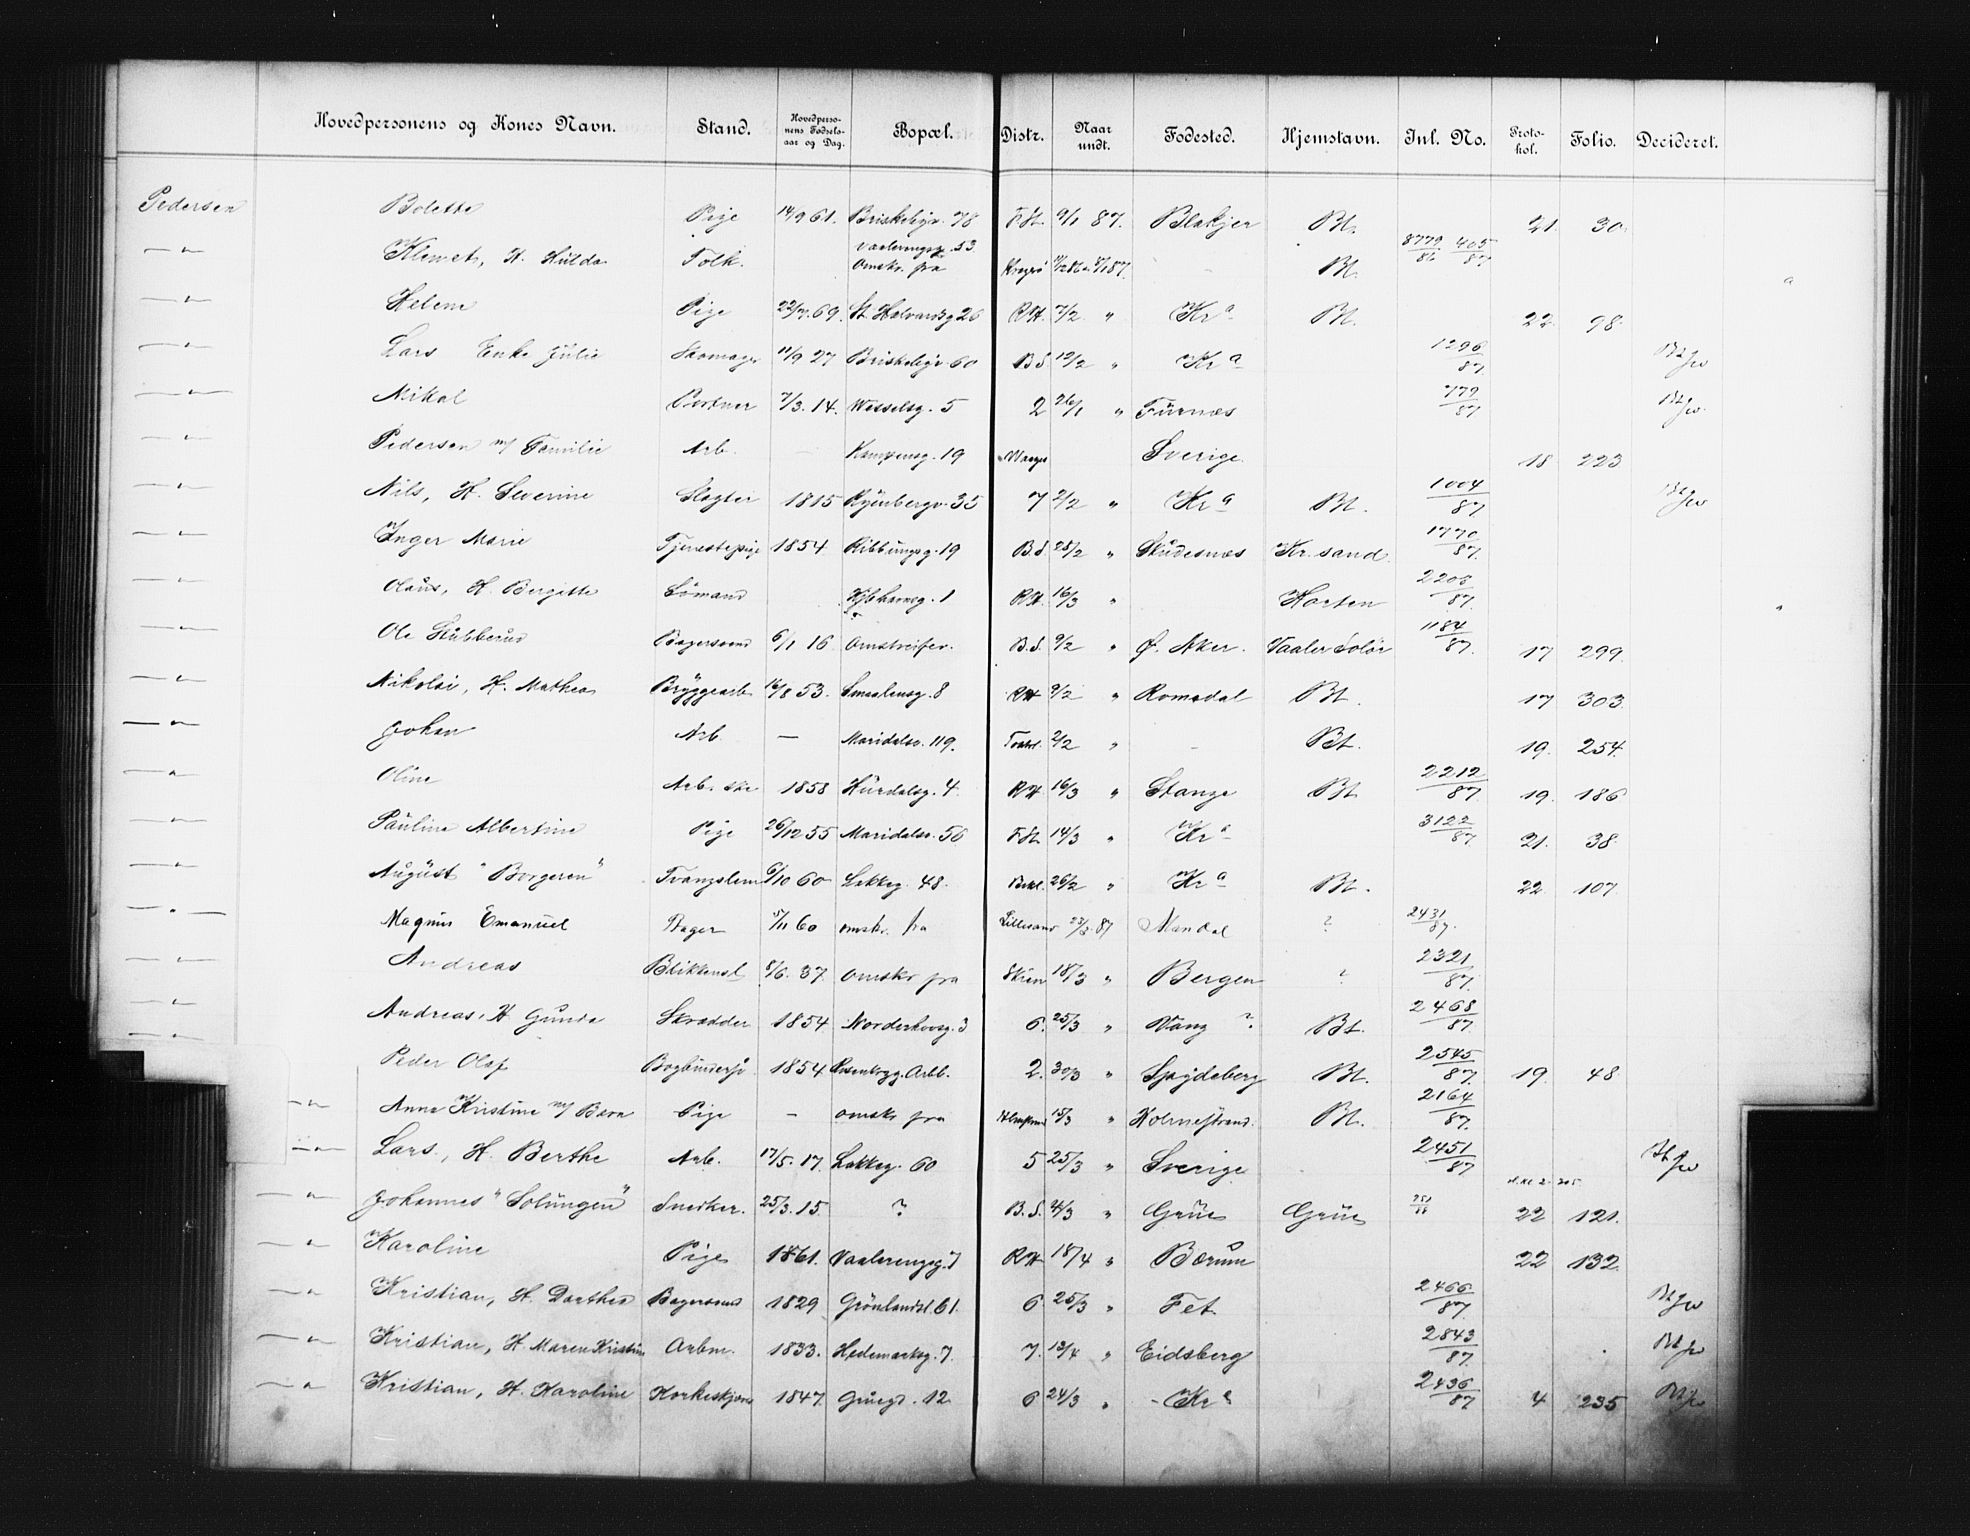 Hovedpersonens og Kones Navn. Stand. Hovedperso-nens Fødsels-aar og Dag. Bopæl. Distr. Naar undt. Fødested. Hjemstavn. Inl. No. Proto-kol. Folio. Decideret.
Pedersen Bolette Pige 14/9 61. Briskebyv. 78 F.St. 9/1 87. Blakjer Bt. 21. 30.
— " — Klemet, H. Hulda Tolk. Vaalerengsg. 53 Omskr. fra Kragerø Bt. 8779/86 405/87
— " — Helene Pige 22/7. 69. St. Halvardsg 26 RH. 7/2 " Kr a Bt. 22. 98.
— " — Lars Enke Julie Skomager 11/9 27 Briskebyv 60 B.d. 12/2 " Kr a 1296/87
— " — Mikal Portner 7/3. 14. Wesselsg. 5 2 26/1 " Furnæs 779/87
— " — Pedersen m/ Familie Arb. — Kampensg. 19 Sverige 18 223
— " — Nils, H. Severine Slagter 1815 Ryenbergv. 35 7 2/2 " Kr a Bt. 1004/87
— " — Inger Marie Tjenestepige 1854 Ribbungsg. 19 B.d. 25/2 " Skudesnæs Kr. sand. 1770/87
Olaus, H. Bergitte Sømand Kjbhavnsg. 1 RH. 16/3 " Horten 2203/87 "
— " — Ole Stubberud Bagersvend 6/1 16 Omstreifer. B.d. 9/2 " Ø. Aker. Vaaler Solør 1184/87. 17 299.
— " — Nikolai, H. Mathea Bryggearb 16/8 53. Smaalensg. 8 RH 9/2 " Romsdal Bt. 17 303.
— " — Johan Arb. — Maridalsv. 119. 2/2 " - Bt. 19. 254.
— " — Oline Arb. ske 1858 Hurdalsg. 4. RH. 16/3 " Stange Bt 2212/87. 19. 186
— " — Pauline Albertine Pige 26/12 55 Maridalsv. 56 F.St. 14/3 " Kr a 3122/87. 21. 38.
— " — August "Borgeren" Tvangslem 6/10 60 Lakkeg. 48. 26/2 " Kr a Bt. 22. 107.
— " — Magnus Emanuel Bager 5/11 60 omskr. fra Lillesand 23/3. 87 Mandal ? 2431/87.
— " — Andreas Blikkensl 8/6. 37. omskr fra Skien 18/3 " Bergen ? 2321/87.
— " — Andreas, H. Gunda Skrædder 1854 Norderhovsg. 3 6. 25/3 " Vang ? Bt. 2468/87.
— " — Peder Olaf 1854 Rosenkrgg. Arbb. 2. 30/3 " Spydeberg Bt. 2545/87. 19. 48.
— " — Anna Kristine m/ Barn Pige - omskr fra 15/3 " Holmestrand. Bt. 2164/87.
— " — Lars, H. Berthe Arb. 17/5. 17. Lakkeg. 60 5 25/3 " Sverige 2451/87
— " — Johannes "Solungen" Snedker. 25/3. 15. ? B.d. " Grue Grue 22 121.
— " — Karoline Pige 1861. Vaalerengsg. 7 RH 18/4 " Bærum 22 132.
— " — Kristian, H. Dorthea Bagersvend 1829 Grønlandsl. 61. 6 25/3 " Fet. 2466/87.
— " — Kristian, H. Maren Kristine Arbm. 1833. Hedemarksg. 7. 7. 13/4 " Eidsberg 2843/87.
— " — Kristian, H. Karoline Korkeskjærer 1847. Gruegd. 12 6 24/3 " Kr a 2436/87 4 235